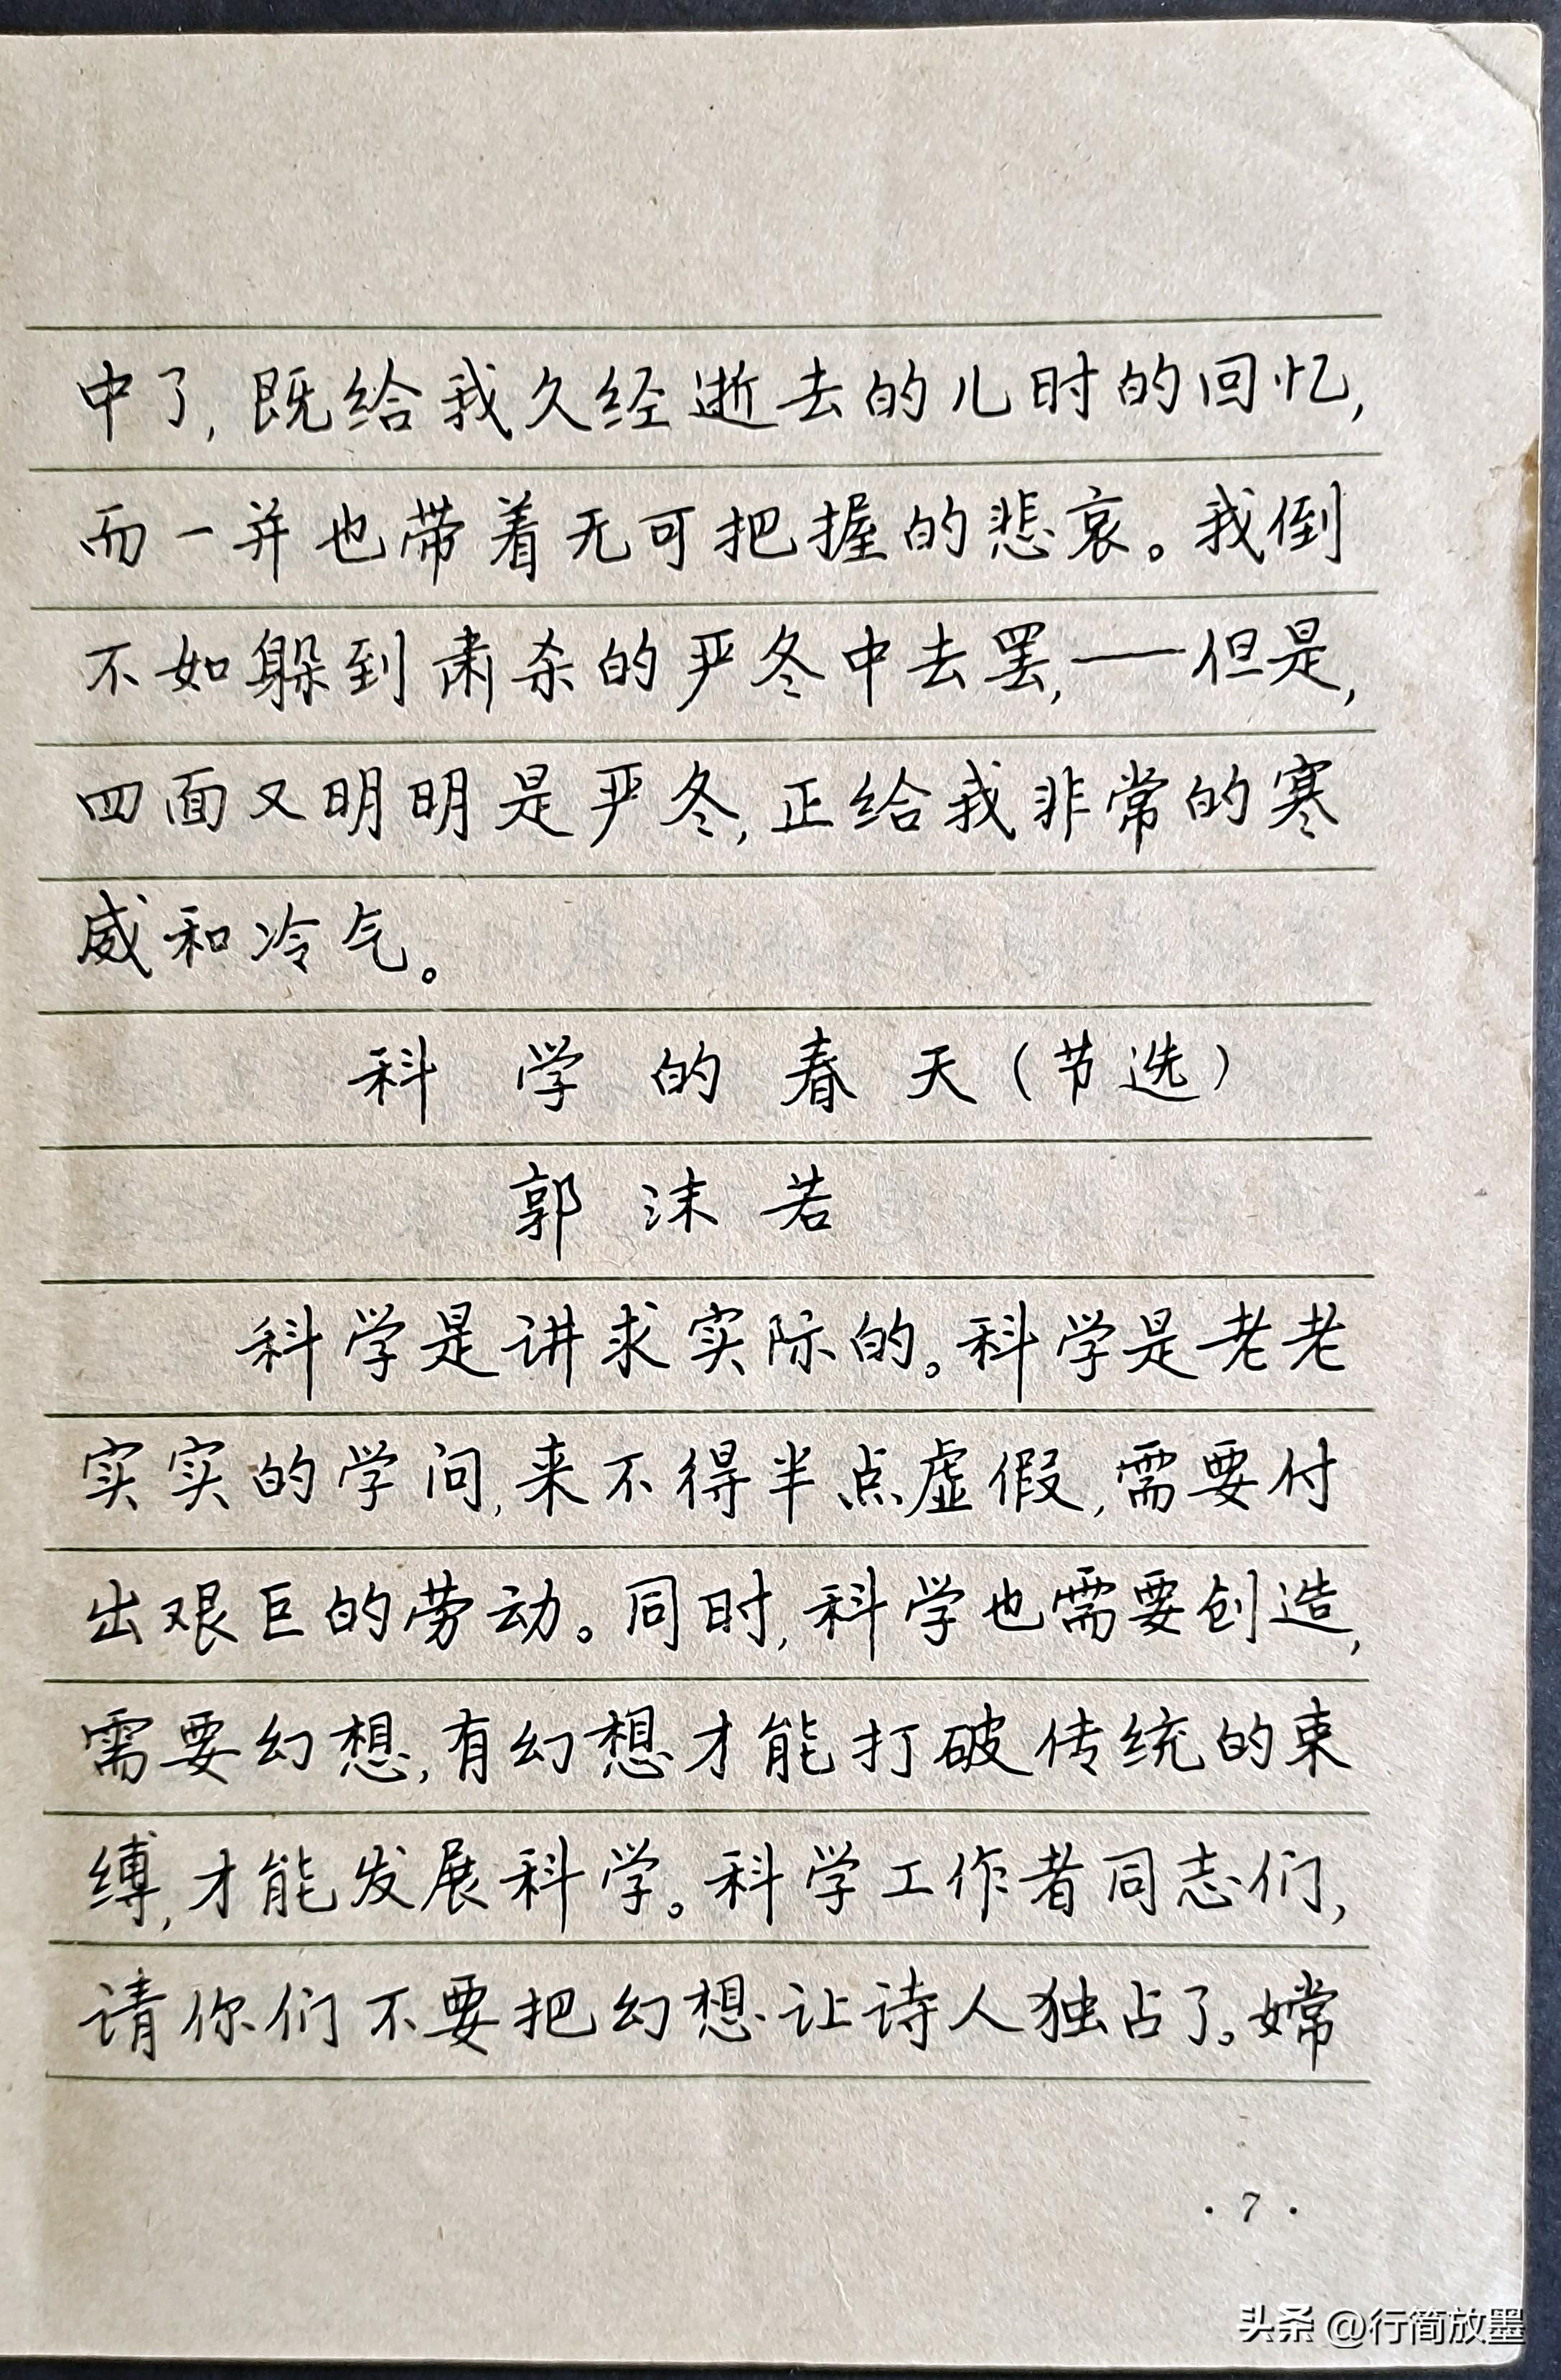 中了,既给我久经逝去的儿时的回忆,
而一并也带着无可把握的悲哀。我倒
不如躲到肃杀的严冬中去罢,——但是,
四面又明明是严冬,正给我非常的寒
威和冷气。
科学的春天(节选)
郭沫若
科学是讲求实际的。科学是老老
实实的学问,来不得半点虚假,需要付
出艰巨的劳动。同时,科学也需要创造,
需要幻想,有幻想才能打破传统的束
缚,才能发展科学。科学工作者同志们,
请你们不要把幻想让诗人独占了。嫦
·7·
头条@行简放墨